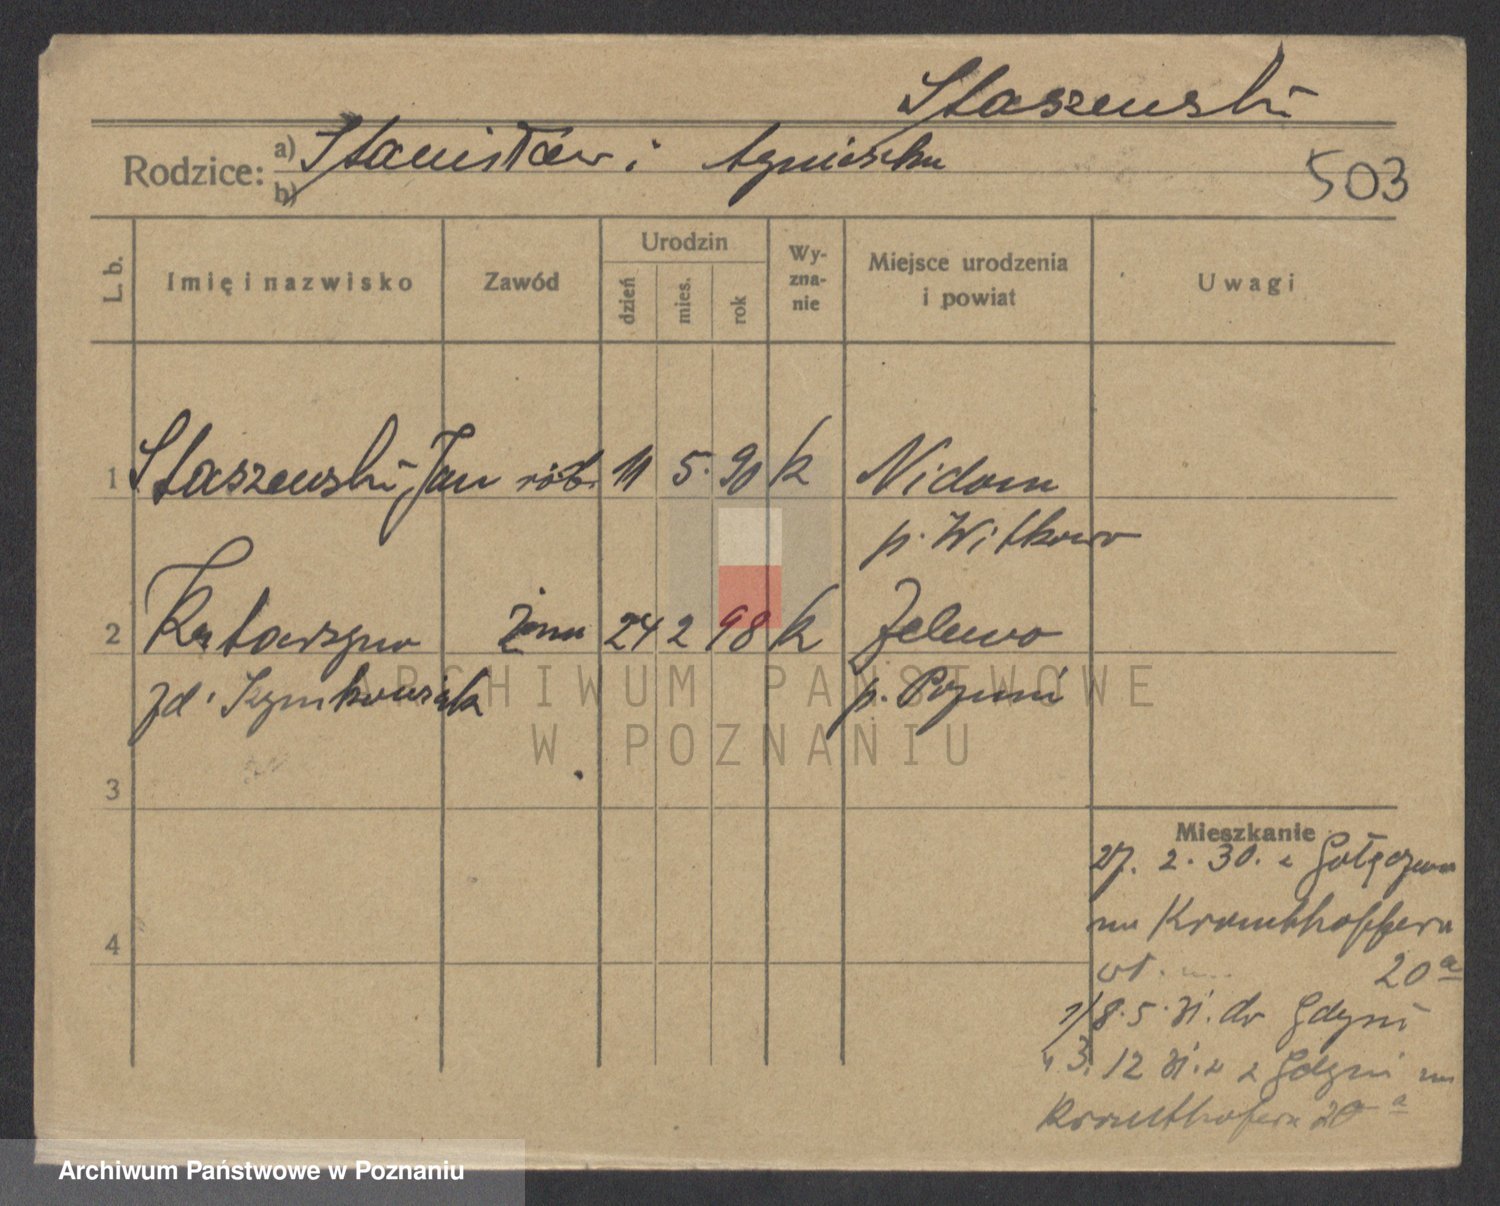 Staszewski
Rodzice: a) Stanisław i Agnieszka
b)
503
L. b. Imię i nazwisko Zawód Urodzin dzień mies. rok Wyznanie Miejsce urodzenia i powiat Uwagi
1 Staszewski Jan rob. 11 5. 90 k Nidom
p. Witkowo
2 Katarzyna żona 24 2 98 k
zd. p. Poznań
ARCHIWUM PAŃSTWOWE
W POZNANIU
3
Mieszkanie
27. 2. 30. z Gołęczewa
na Krauthoffera
20a
4
1/8. 5. 31. do Gdyni
3. 12 31. z Gdyni na
Krauthofera 20a
Archiwum Państwowe w Poznaniu